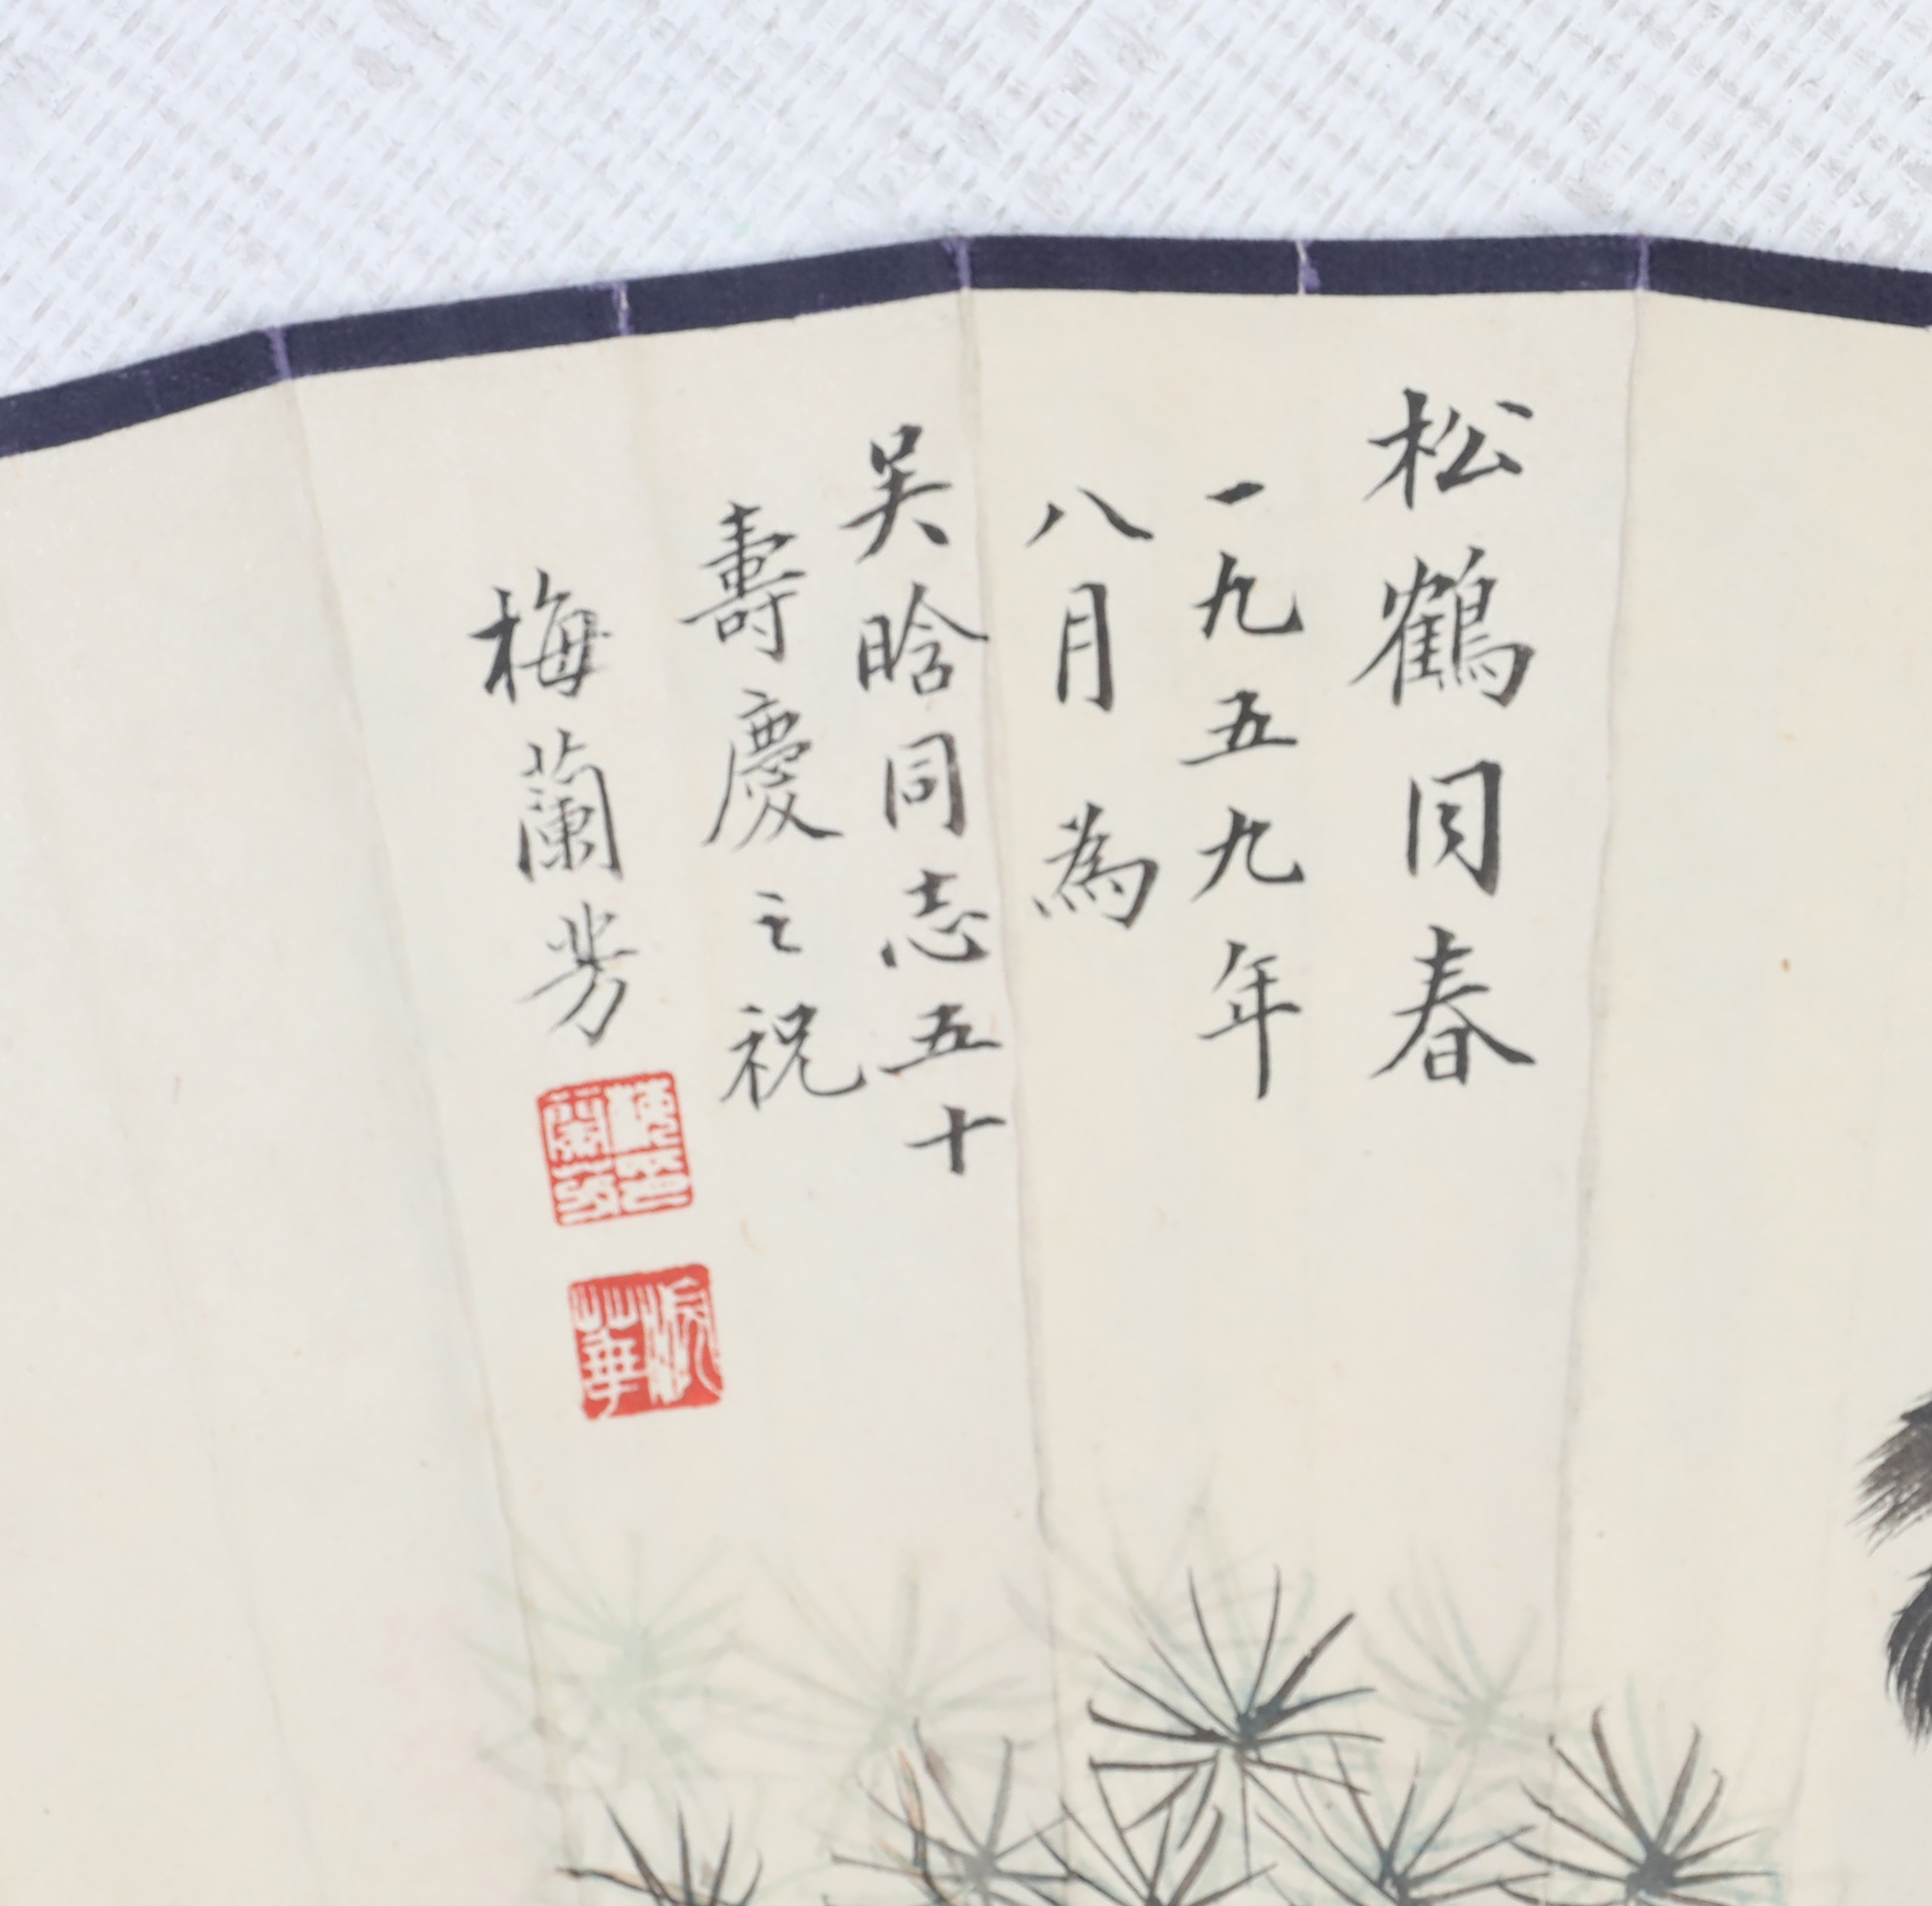 松鶴同春
一九五九年
八月為
吳晗同志五十
壽慶之祝
梅蘭芳
梅蘭芳印
浣華